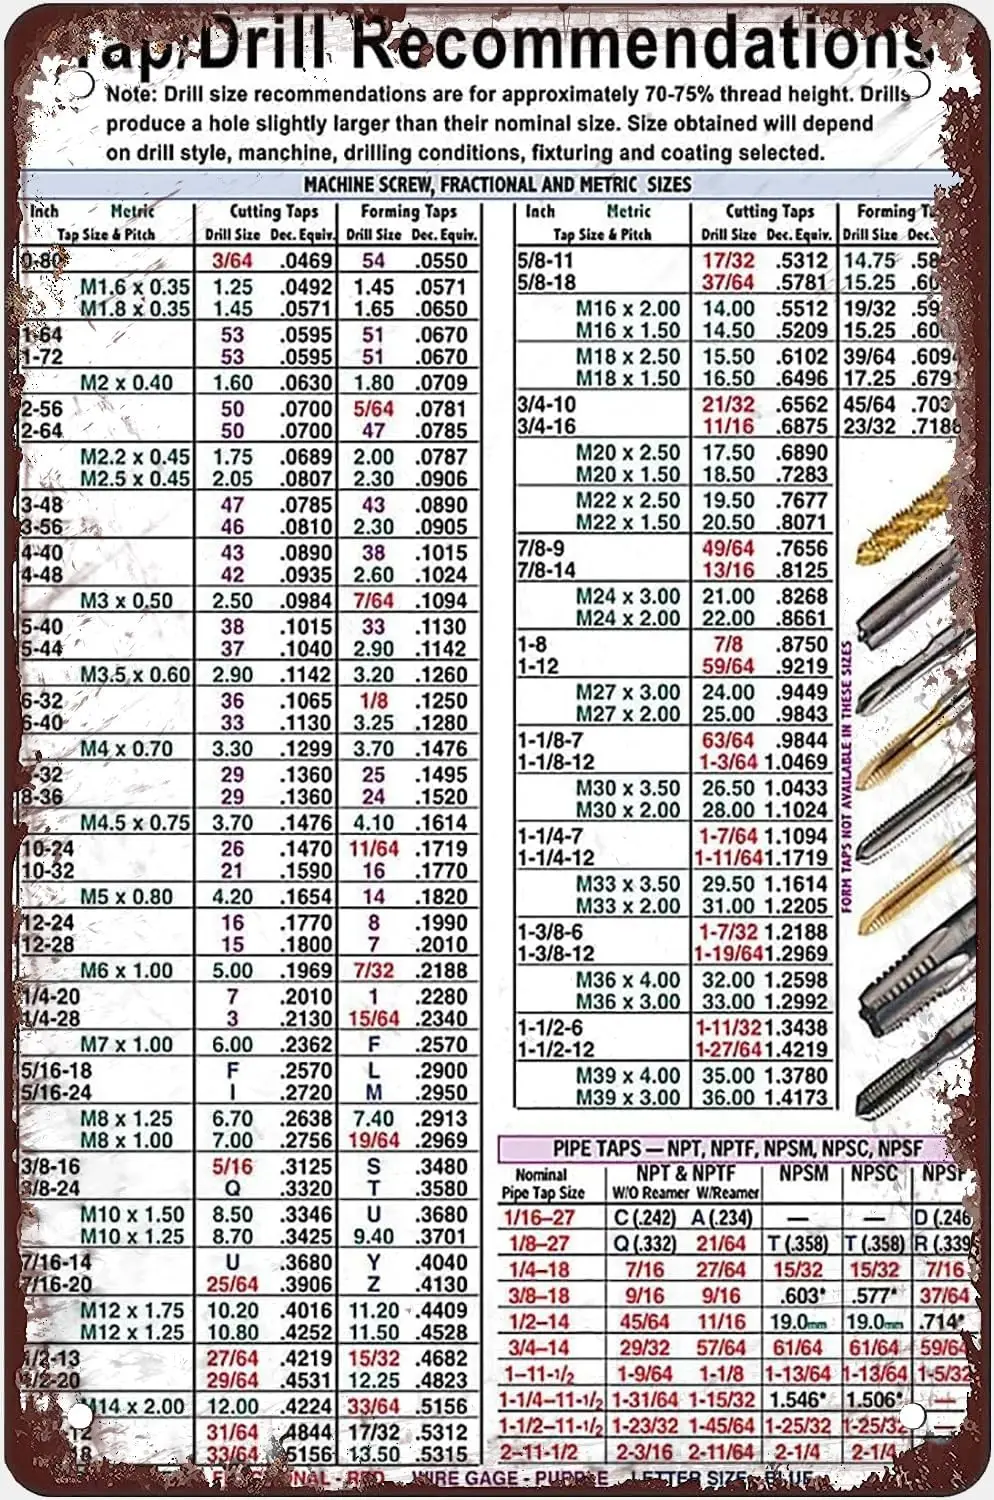 Drill Recommendations
Note: Drill size recommendations are for approximately 70-75% thread height. Drills
produce a hole slightly larger than their nominal size. Size obtained will depend
on drill style, manchine, drilling conditions, fixturing and coating selected.
MACHINE SCREW, FRACTIONAL AND METRIC SIZES
Inch Metric Cutting Taps Forming Taps
Tap Size & Pitch Drill Size Dec. Equiv. Drill Size Dec. Equiv.
0-80 3/64 .0469 54 .0550
M1.6 x 0.35 1.25 .0492 1.45 .0571
M1.8 x 0.35 1.45 .0571 1.65 .0650
1-64 53 .0595 51 .0670
1-72 53 .0595 51 .0670
M2 x 0.40 1.60 .0630 1.80 .0709
2-56 50 .0700 5/64 .0781
2-64 50 .0700 47 .0785
M2.2 x 0.45 1.75 .0689 2.00 .0787
M2.5 x 0.45 2.05 .0807 2.30 .0906
3-48 47 .0785 43 .0890
3-56 46 .0810 2.30 .0905
4-40 43 .0890 38 .1015
4-48 42 .0935 2.60 .1024
M3 x 0.50 2.50 .0984 7/64 .1094
5-40 38 .1015 33 .1130
5-44 37 .1040 2.90 .1142
M3.5 x 0.60 2.90 .1142 3.20 .1260
6-32 36 .1065 1/8 .1250
6-40 33 .1130 3.25 .1280
M4 x 0.70 3.30 .1299 3.70 .1476
-32 29 .1360 25 .1495
8-36 29 .1360 24 .1520
M4.5 x 0.75 3.70 .1476 4.10 .1614
10-24 26 .1470 11/64 .1719
10-32 21 .1590 16 .1770
M5 x 0.80 4.20 .1654 14 .1820
12-24 16 .1770 8 .1990
12-28 15 .1800 7 .2010
M6 x 1.00 5.00 .1969 7/32 .2188
1/4-20 7 .2010 1 .2280
1/4-28 3 .2130 15/64 .2340
M7 x 1.00 6.00 .2362 F .2570
5/16-18 F .2570 L .2900
5/16-24 I .2720 M .2950
M8 x 1.25 6.70 .2638 7.40 .2913
M8 x 1.00 7.00 .2756 19/64 .2969
3/8-16 5/16 .3125 S .3480
3/8-24 Q .3320 T .3580
M10 x 1.50 8.50 .3346 U .3680
M10 x 1.25 8.70 .3425 9.40 .3701
7/16-14 U .3680 Y .4040
7/16-20 25/64 .3906 Z .4130
M12 x 1.75 10.20 .4016 11.20 .4409
M12 x 1.25 10.80 .4252 11.50 .4528
1/2-13 27/64 .4219 15/32 .4682
1/2-20 29/64 .4531 12.25 .4823
M14 x 2.00 12.00 .4224 33/64 .5156
12 31/64 .4844 17/32 .5312
18 33/64 .5156 13.50 .5315
Inch Metric Cutting Taps Forming
Tap Size & Pitch Drill Size Dec. Equiv. Drill Size Dec.
5/8-11 17/32 .5312 14.75 .58
5/8-18 37/64 .5781 15.25 .60
M16 x 2.00 14.00 .5512 19/32 .59
M16 x 1.50 14.50 .5209 15.25 .60
M18 x 2.50 15.50 .6102 39/64 .6094
M18 x 1.50 16.50 .6496 17.25 .679
3/4-10 21/32 .6562 45/64 .703
3/4-16 11/16 .6875 23/32 .7188
M20 x 2.50 17.50 .6890
M20 x 1.50 18.50 .7283
M22 x 2.50 19.50 .7677
M22 x 1.50 20.50 .8071
7/8-9 49/64 .7656
7/8-14 13/16 .8125
M24 x 3.00 21.00 .8268
M24 x 2.00 22.00 .8661
1-8 7/8 .8750
1-12 59/64 .9219
M27 x 3.00 24.00 .9449
M27 x 2.00 25.00 .9843
1-1/8-7 63/64 .9844
1-1/8-12 1-3/64 1.0469
M30 x 3.50 26.50 1.0433
M30 x 2.00 28.00 1.1024
1-1/4-7 1-7/64 1.1094
1-1/4-12 1-11/64 1.1719
M33 x 3.50 29.50 1.1614
M33 x 2.00 31.00 1.2205
1-3/8-6 1-7/32 1.2188
1-3/8-12 1-19/64 1.2969
M36 x 4.00 32.00 1.2598
M36 x 3.00 33.00 1.2992
1-1/2-6 1-11/32 1.3438
1-1/2-12 1-27/64 1.4219
M39 x 4.00 35.00 1.3780
M39 x 3.00 36.00 1.4173
FORM TAPS NOT AVAILABLE IN THESE SIZES
PIPE TAPS — NPT, NPTF, NPSM, NPSC, NPSF
Nominal NPT & NPTF NPSM NPSC NPSF
Pipe Tap Size W/O Reamer W/Reamer
1/16–27 C (.242) A (.234) — — D (.246
1/8–27 Q (.332) 21/64 T (.358) T (.358) R (.339
1/4–18 7/16 27/64 15/32 15/32 7/16
3/8–18 9/16 9/16 .603* .577* 37/64
1/2–14 45/64 11/16 19.0mm 19.0mm .714*
3/4–14 29/32 57/64 61/64 61/64 59/64
1–11-1/2 1-9/64 1-1/8 1-13/64 1-13/64 1-5/32
1-1/4–11-1/2 1-31/64 1-15/32 1.546* 1.506* —
1-1/2–11-1/2 1-23/32 1-45/64 1-25/32 1-25/32 —
2–11-1/2 2-3/16 2-11/64 2-1/4 2-1/4
RED WIRE GAGE - PURPLE LETTER SIZE - BLUE